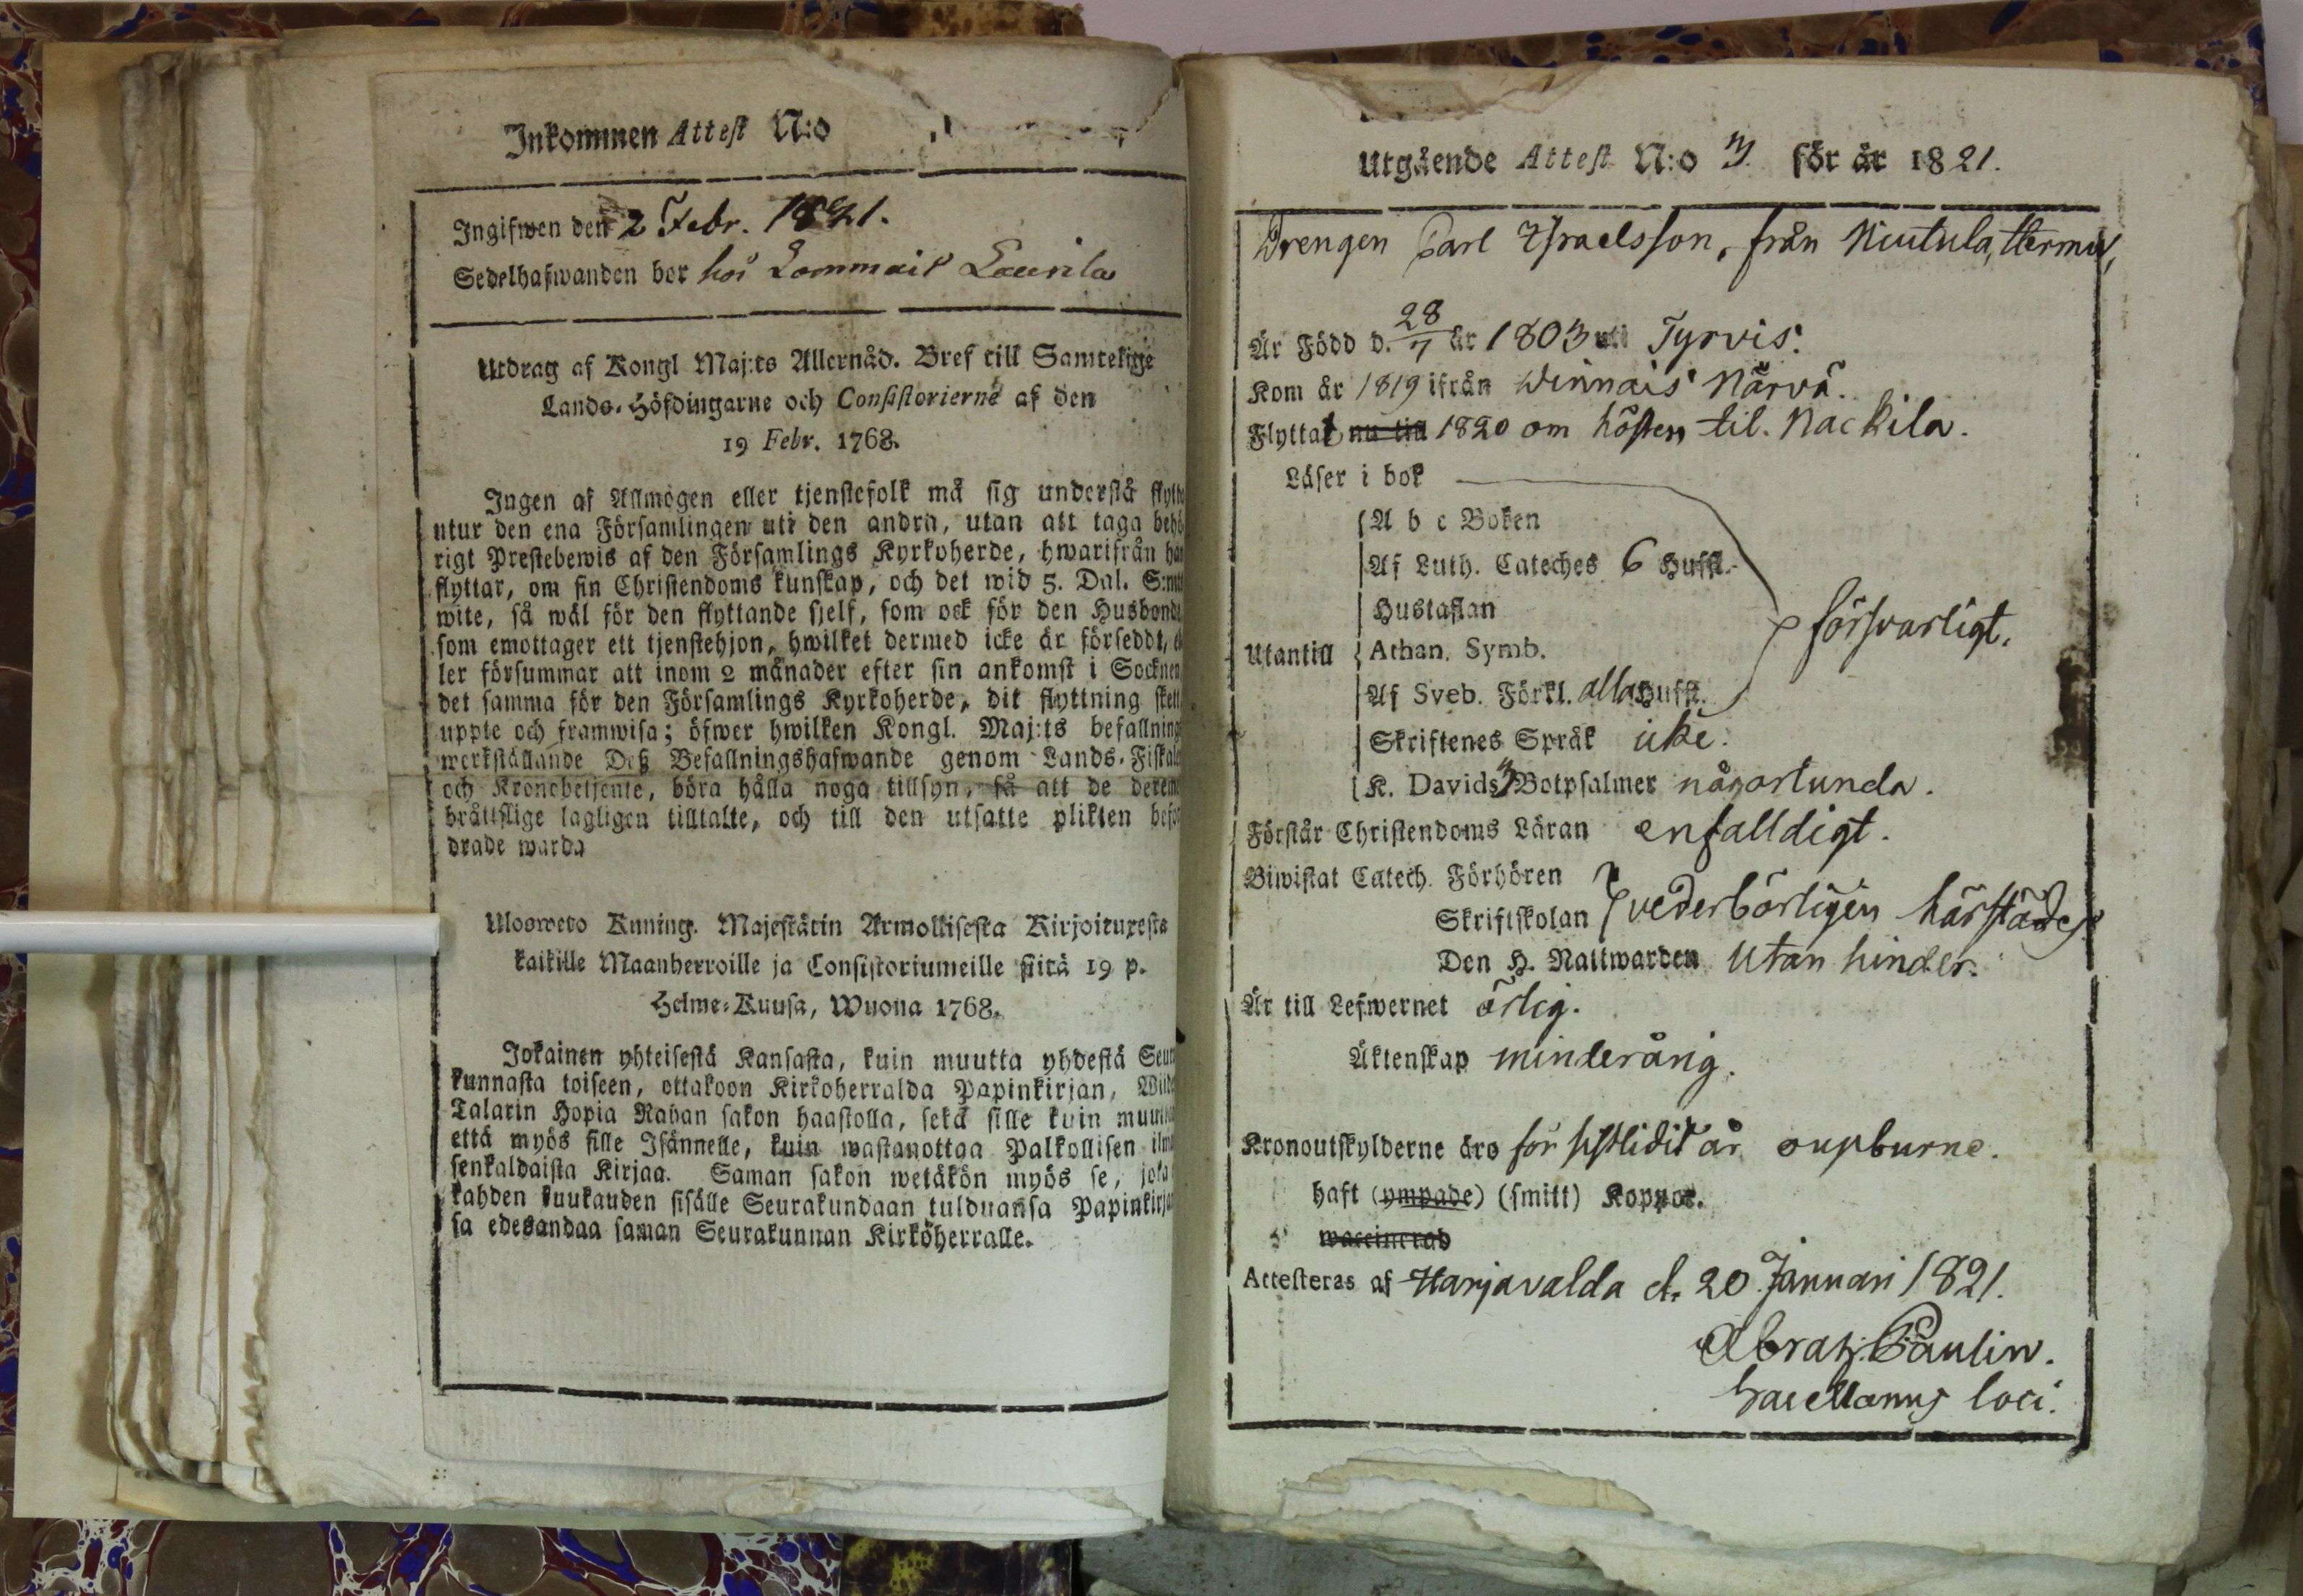 Inkommen Attest N:o
Ingifwen den 2 Febr. 1821.
Sedelhafwanden bor hos Lommais Laurila
Utdrag af Kongl Maj:ts Allernåd. Bref till Samtelige
Lands-Höfdingarne och Consistorierne af den
19 Febr. 1768.
Ingen af Allmogen eller tjenstefolk må sig understå flytta
utur den ena Församlingen uti den andra, utan att taga behö
rigt Prestebewis af den Församlings Kyrkoherde, hwarifrån han
flyttar, om sin Christendoms kunskap, och det wid 5. Dal. S:mt
wite, så wäl för den flyttande sjelf, som ock för den Husbonde
som emottager ett tjenstehjon, hwilket dermed icke är förseddt, el
ler försummar att inom 2 månader efter sin ankomst i Socknen
det samma för den Församlings Kyrkoherde, dit flyttning skett
uppte och framwisa; öfwer hwilken Kongl. Maj:ts befallning
werkställande Deß Befallningshafwande genom Lands-Fiskaler
och Kronobetjente, böra hålla noga tillsyn, så att de deremot
bråttslige lagligen tilltalte, och till den utsatte plikten befor
drade warda
Ulosweto Kuning. Majestätin Armollisesta Kirjoituxesta
kaikille Maanherroille ja Consistoriumeille siitä 19 p.
Helme-Kuusa, Wuona 1768.
Jokainen yhteisestä Kansasta, kuin muutta yhdestä Seura
kunnasta toiseen, ottakoon Kirkoherralda Papinkirjan, Wiiden
Talarin Hopia Rahan sakon haastolla, sekä sille kuin muutta
että myös sille Isännelle, kuin wastanottaa Palkollisen ilman
senkaldaista Kirjaa. Saman sakon wetäkön myös se, joka
kahden kuukauden sisälle Seurakundaan tulduansa Papinkirjan
sa edesandaa saman Seurakunnan Kirköherralle.
Utgående Attest N:o 3 för år 1821.
Drengen Carl Israelsson, från Niutula,
Är Född d. 28/7 år 1803 uti Tyrvis.
Kom år 1819 ifrån Winnais Närvä.
Flyttat nu till 1820 om hösten til Nackila.
Läser i bok
A b c Boken
Af Luth. Cateches 6 Huffst.
Hustaflan
försvarligt.
Utantill Athan. Symb.
Af Sveb. Förkl. alla Huffst.
Skriftenes Språk icke.
K. Davids 3 Botpsalmer någorlunda.
Förstår Christendoms Läran enfalldigt.
Biwistat Catech. Förhören
Skriftskolan vederbörligen härstädes
Den H. Nattwarden Utan hinder.
Är till Lefwernet ärlig.
Äktenskap minderårig.
Kronoutskylderne äro för sistlidit år oupburne.
haft (ympade) (smitt) Koppor.
waccinerad
Attesteras af Harjavalda d. 20 Januari 1821.
Abrah. Paulin.
Sacellanus loci.